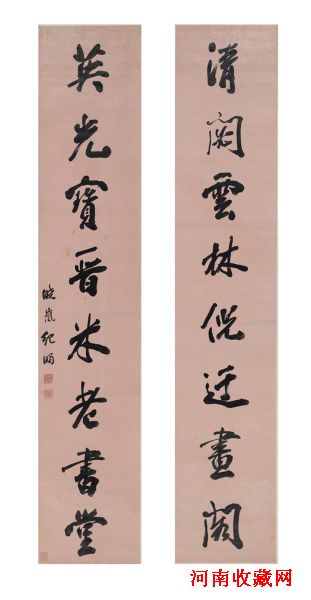 清閟雲林倪迂畫閣
英光寶晋米老書堂
曉嵐紀昀
河南收藏网